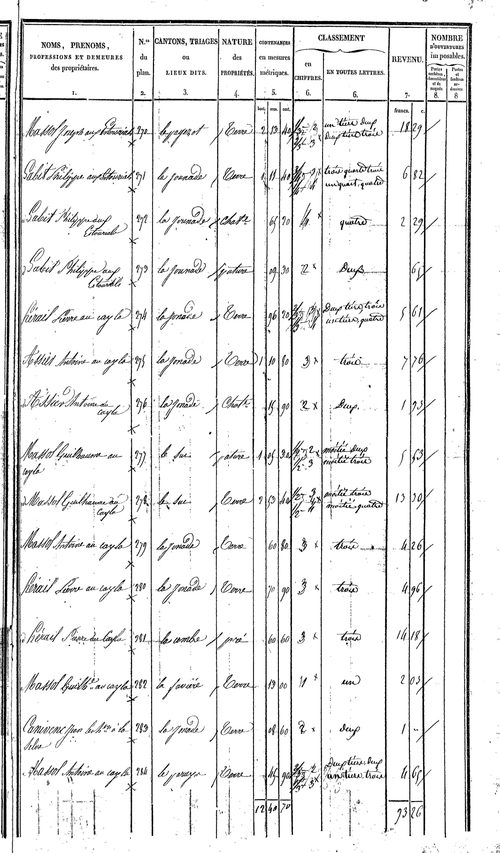 NOMS, PRENOMS, PROFESSIONS ET DEMEURES des propriétaires. 1.
N.os du plan. 2.
CANTONS, TRIAGES ou LIEUX DITS. 3.
NATURE des PROPRIÉTÉS. 4.
CONTENANCES en mesures métriques. 5.
CLASSEMENT
en CHIFFRES. 6.
EN TOUTES LETTRES. 6.
REVENU. 7.
NOMBRE D'OUVERTURES imposables.
8. 8.
hect. ares. cent. francs. c.
Massol Joseph aux 270 Terre 2 13 40 un tiers deux deux tiers trois 18 29
Gabit Philippe aux 271 la jonade Terre 1 11 40 trois quarts trois un quart quatre 6 82
Gabit Philippe aux 272 la jounade Chat.e 65 20 4 quatre 2 29
Gabit Philippe aux 273 la jounade pature 09 30 2 Deux 65
Hérail Pierre au cayla 274 la jonade Terre 96 20 Deux tiers trois un tiers quatre 5 61
Antoine au cayla 275 la jonade Terre 1 10 80 3 trois 7 76
Antoine au cayla 276 la jonade Chat.e 15 90 2 Deux 1 93
Massol Guilhaume au cayla 277 le suc pature 1 05 30 1/2 2 1/2 3 moitié deux moitié trois 5 53
Massol Guilhaume au Cayla 278 le suc Terre 2 53 40 1/2 3 1/2 4 moitié trois moitié quatre 13 30
Massol Antoine au cayla 279 la jonade Terre 60 80 3 trois 4 26
Hérail Pierre au cayla 280 la jonade Terre 70 90 3 trois 4 96
Hérail Pierre au Cayla 281 la combe pré 60 60 3 trois 14 18
Massol Guilh.e au cayla 282 Terre 13 00 1 un 2 03
Canivenc Jean à la Selve 283 la jonade Terre 08 60 2 deux 1 -
Massol Antoine au cayla 284 Terre 45 90 Deux tiers deux un tiers trois 4 65
12 40 70 93 26